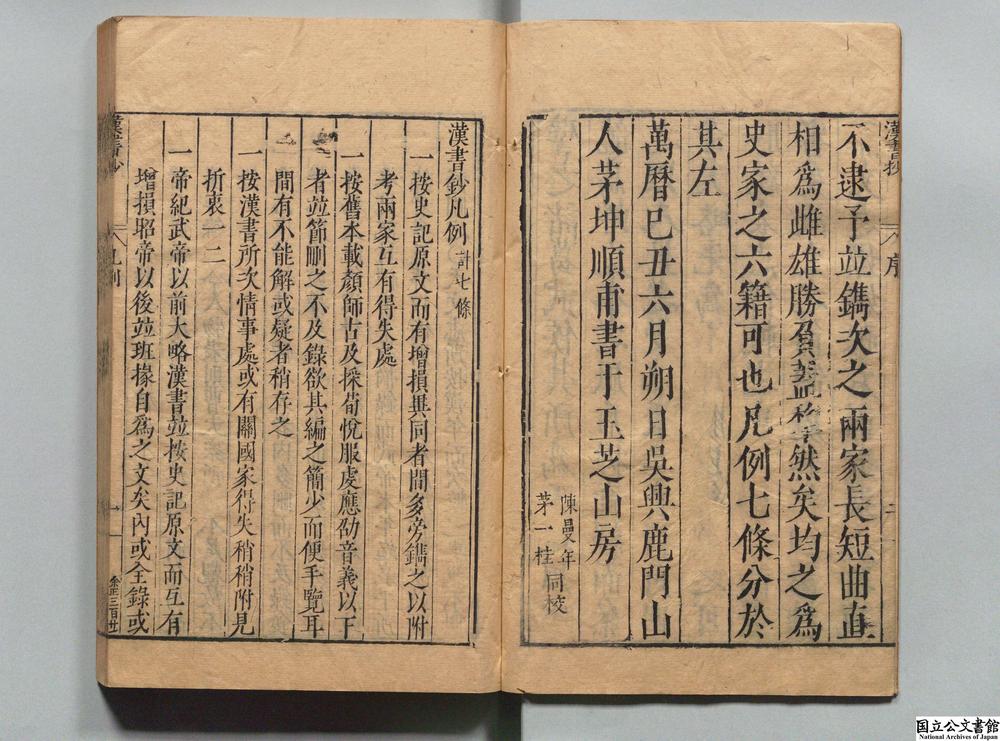 漢書抄
序
二
不逮予竝鐫次之兩家長短曲直
相爲雌雄勝負蓋犂然矣均之爲
史家之六籍可也凡例七條分於
其左
萬曆己丑六月朔日吳興鹿門山
人茅坤順甫書于玉芝山房
陳曼年
茅一桂同校
漢書鈔凡例 計七條
一按史記原文而有增損異同者間多旁鐫之以附
考兩家互有得失處
一按舊本載顏師古及採荀悅服虔應劭音義以下
者竝節刪之不及錄欲其編之簡少而便手覽耳
間有不能解或疑者稍存之
一按漢書所次情事處或有關國家得失稍稍附見
折衷一二
一帝紀武帝以前大略漢書竝按史記原文而互有
增損昭帝以後竝班掾自爲之文矣內或全錄或
漢書鈔
凡例
一
国立公文書館
National Archives of Japan